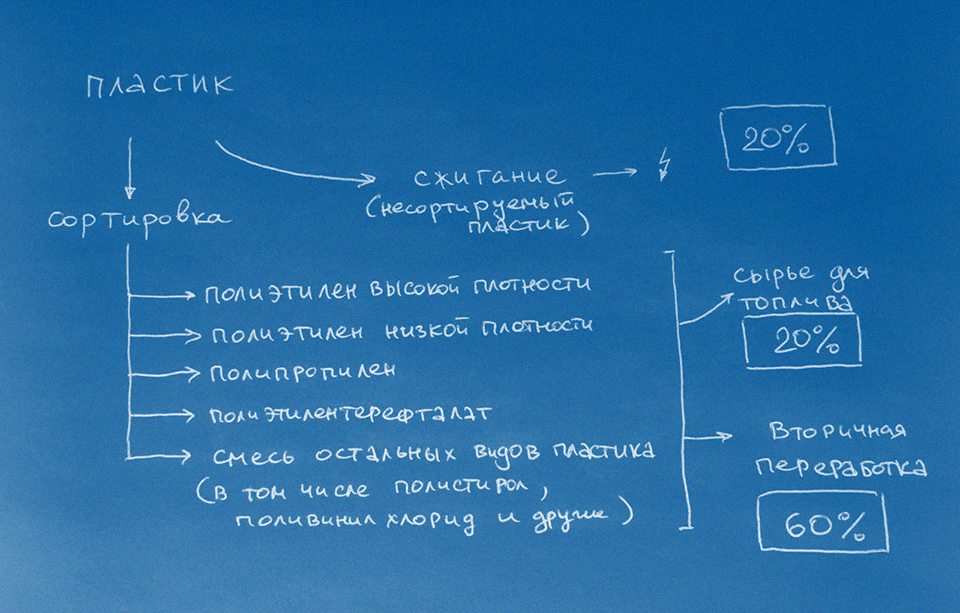 пластик
20%
сжигание
(несортируемый
пластик)
сортировка
полиэтилен высокой плотности
полиэтилен низкой плотности
полипропилен
полиэтилентерефталат
смесь остальных видов пластика
(в том числе полистирол,
поливинил хлорид и другие)
сырье для
топлива
20%
Вторичная
переработка
60%